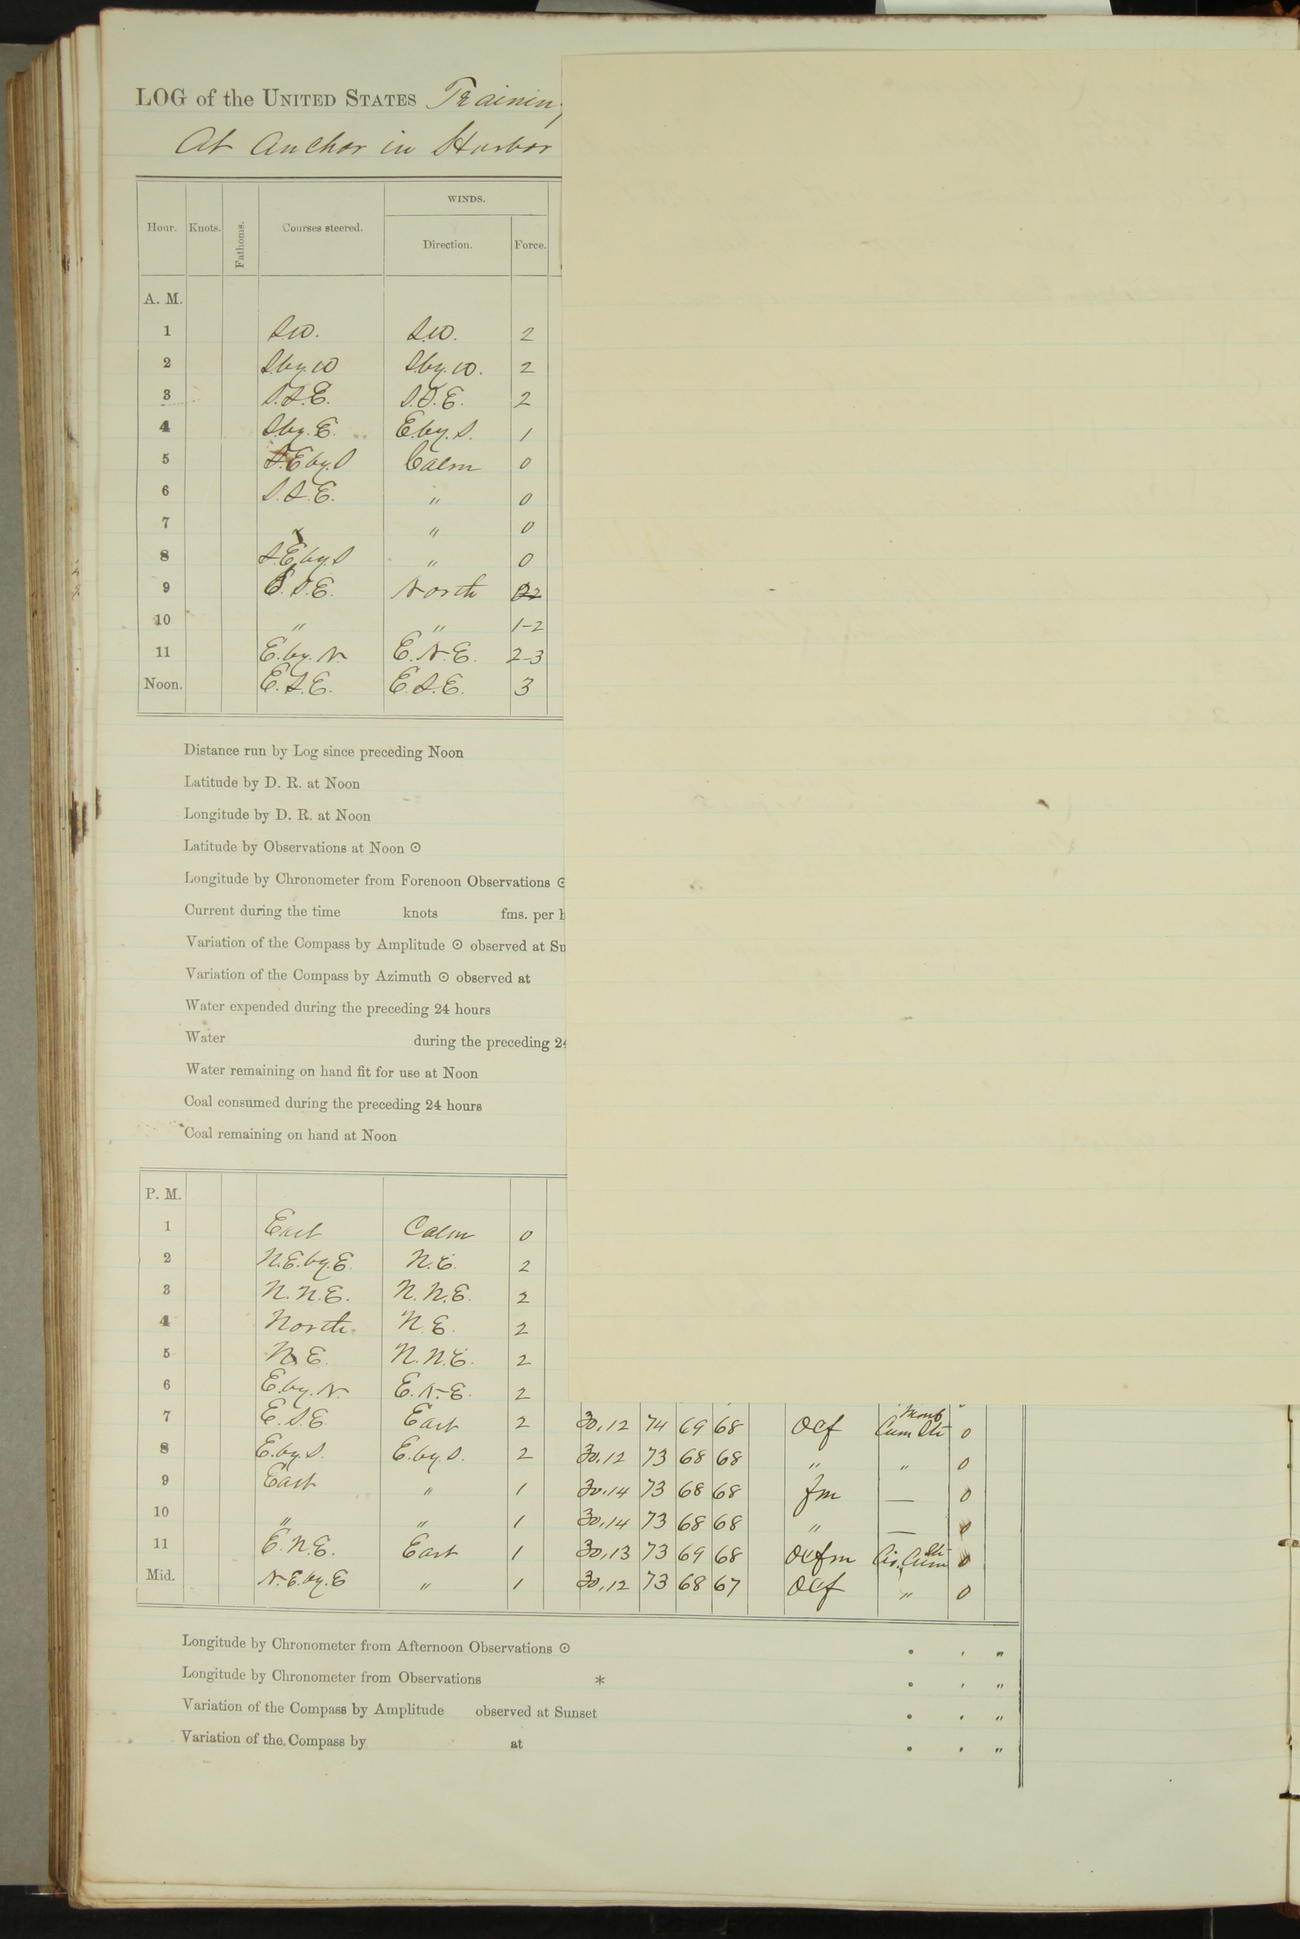 LOG of the UNITED STATES Training
At Anchor in Harbor
WINDS.
Hour. Knots. Fathoms. Courses steered. Direction. Force.
A. M.
1 S.W. S.W. 2
2 S.by.W S.by.W. 2
3 S.S.E. S.S.E. 2
4 S.by.E. E.by.S. 1
5 S.E by.S Calm 0
6 S.S.E. " 0
7 " 0
8 S.E by.S " 0
9 E.S.E. North
10 " " 1-2
11 E.by.N. E.N.E. 2-3
Noon. E.S.E. E.S.E. 3
Distance run by Log since preceding Noon
Latitude by D. R. at Noon
Longitude by D. R. at Noon
Latitude by Observations at Noon ⊙
Longitude by Chronometer from Forenoon Observations ⊙
Current during the time knots fms. per h
Variation of the Compass by Amplitude ⊙ observed at Su
Variation of the Compass by Azimuth ⊙ observed at
Water expended during the preceding 24 hours
Water during the preceding 24
Water remaining on hand fit for use at Noon
Coal consumed during the preceding 24 hours
Coal remaining on hand at Noon
P. M.
1 East Calm 0
2 N.E.by.E. N.E. 2
3 N.N.E. N.N.E. 2
4 North N.E. 2
5 N.E. N.N.E. 2
6 E.by.N. E.N.E. 2
7 E.S.E. East 2 30.12 74 69 68 ocf Cum Str 0
8 E.by.S. E.by.S. 2 30.12 73 68 68 " " 0
9 East " 1 30.14 73 68 68 fm — 0
10 " " 1 30.14 73 68 68 " — 0
11 E.N.E. East 1 30.13 73 69 68 ocfm Cir. Cum Str 0
Mid. N.E.by.E " 1 30.12 73 68 67 ocf " 0
Longitude by Chronometer from Afternoon Observations ⊙ ° ' "
Longitude by Chronometer from Observations * ° ' "
Variation of the Compass by Amplitude observed at Sunset ° ' "
Variation of the Compass by at ° ' "